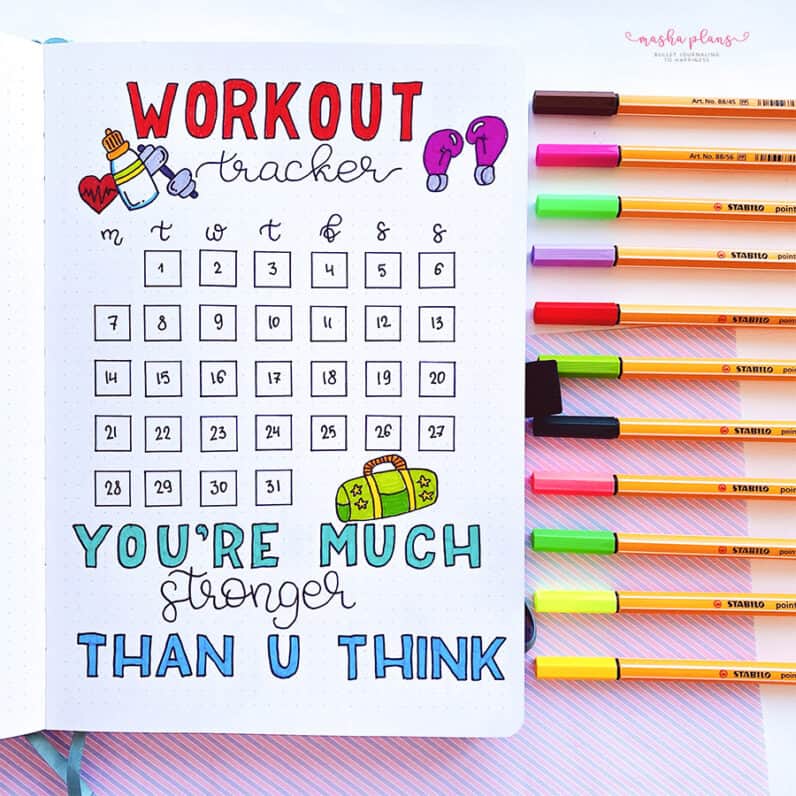 masha plans
BULLET JOURNALING
TO HAPPINESS
WORKOUT
tracker
m t w t f s s
1 2 3 4 5 6
7 8 9 10 11 12 13
14 15 16 17 18 19 20
21 22 23 24 25 26 27
28 29 30 31
YOU'RE MUCH
stronger
THAN U THINK
Art. No. 88/45
Art. No. 88/56
STABILO point
STABILO point
STABILO point
STABILO poin
STABILO point
STABILO point
STABILO point
STABILO point
STABILO point